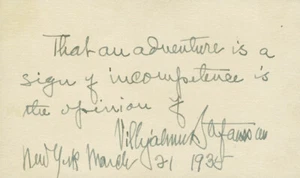 That an adventure is a
sign of incompetence is
the opinion of
Vilhjalmur Stefansson
New York March 21 1935